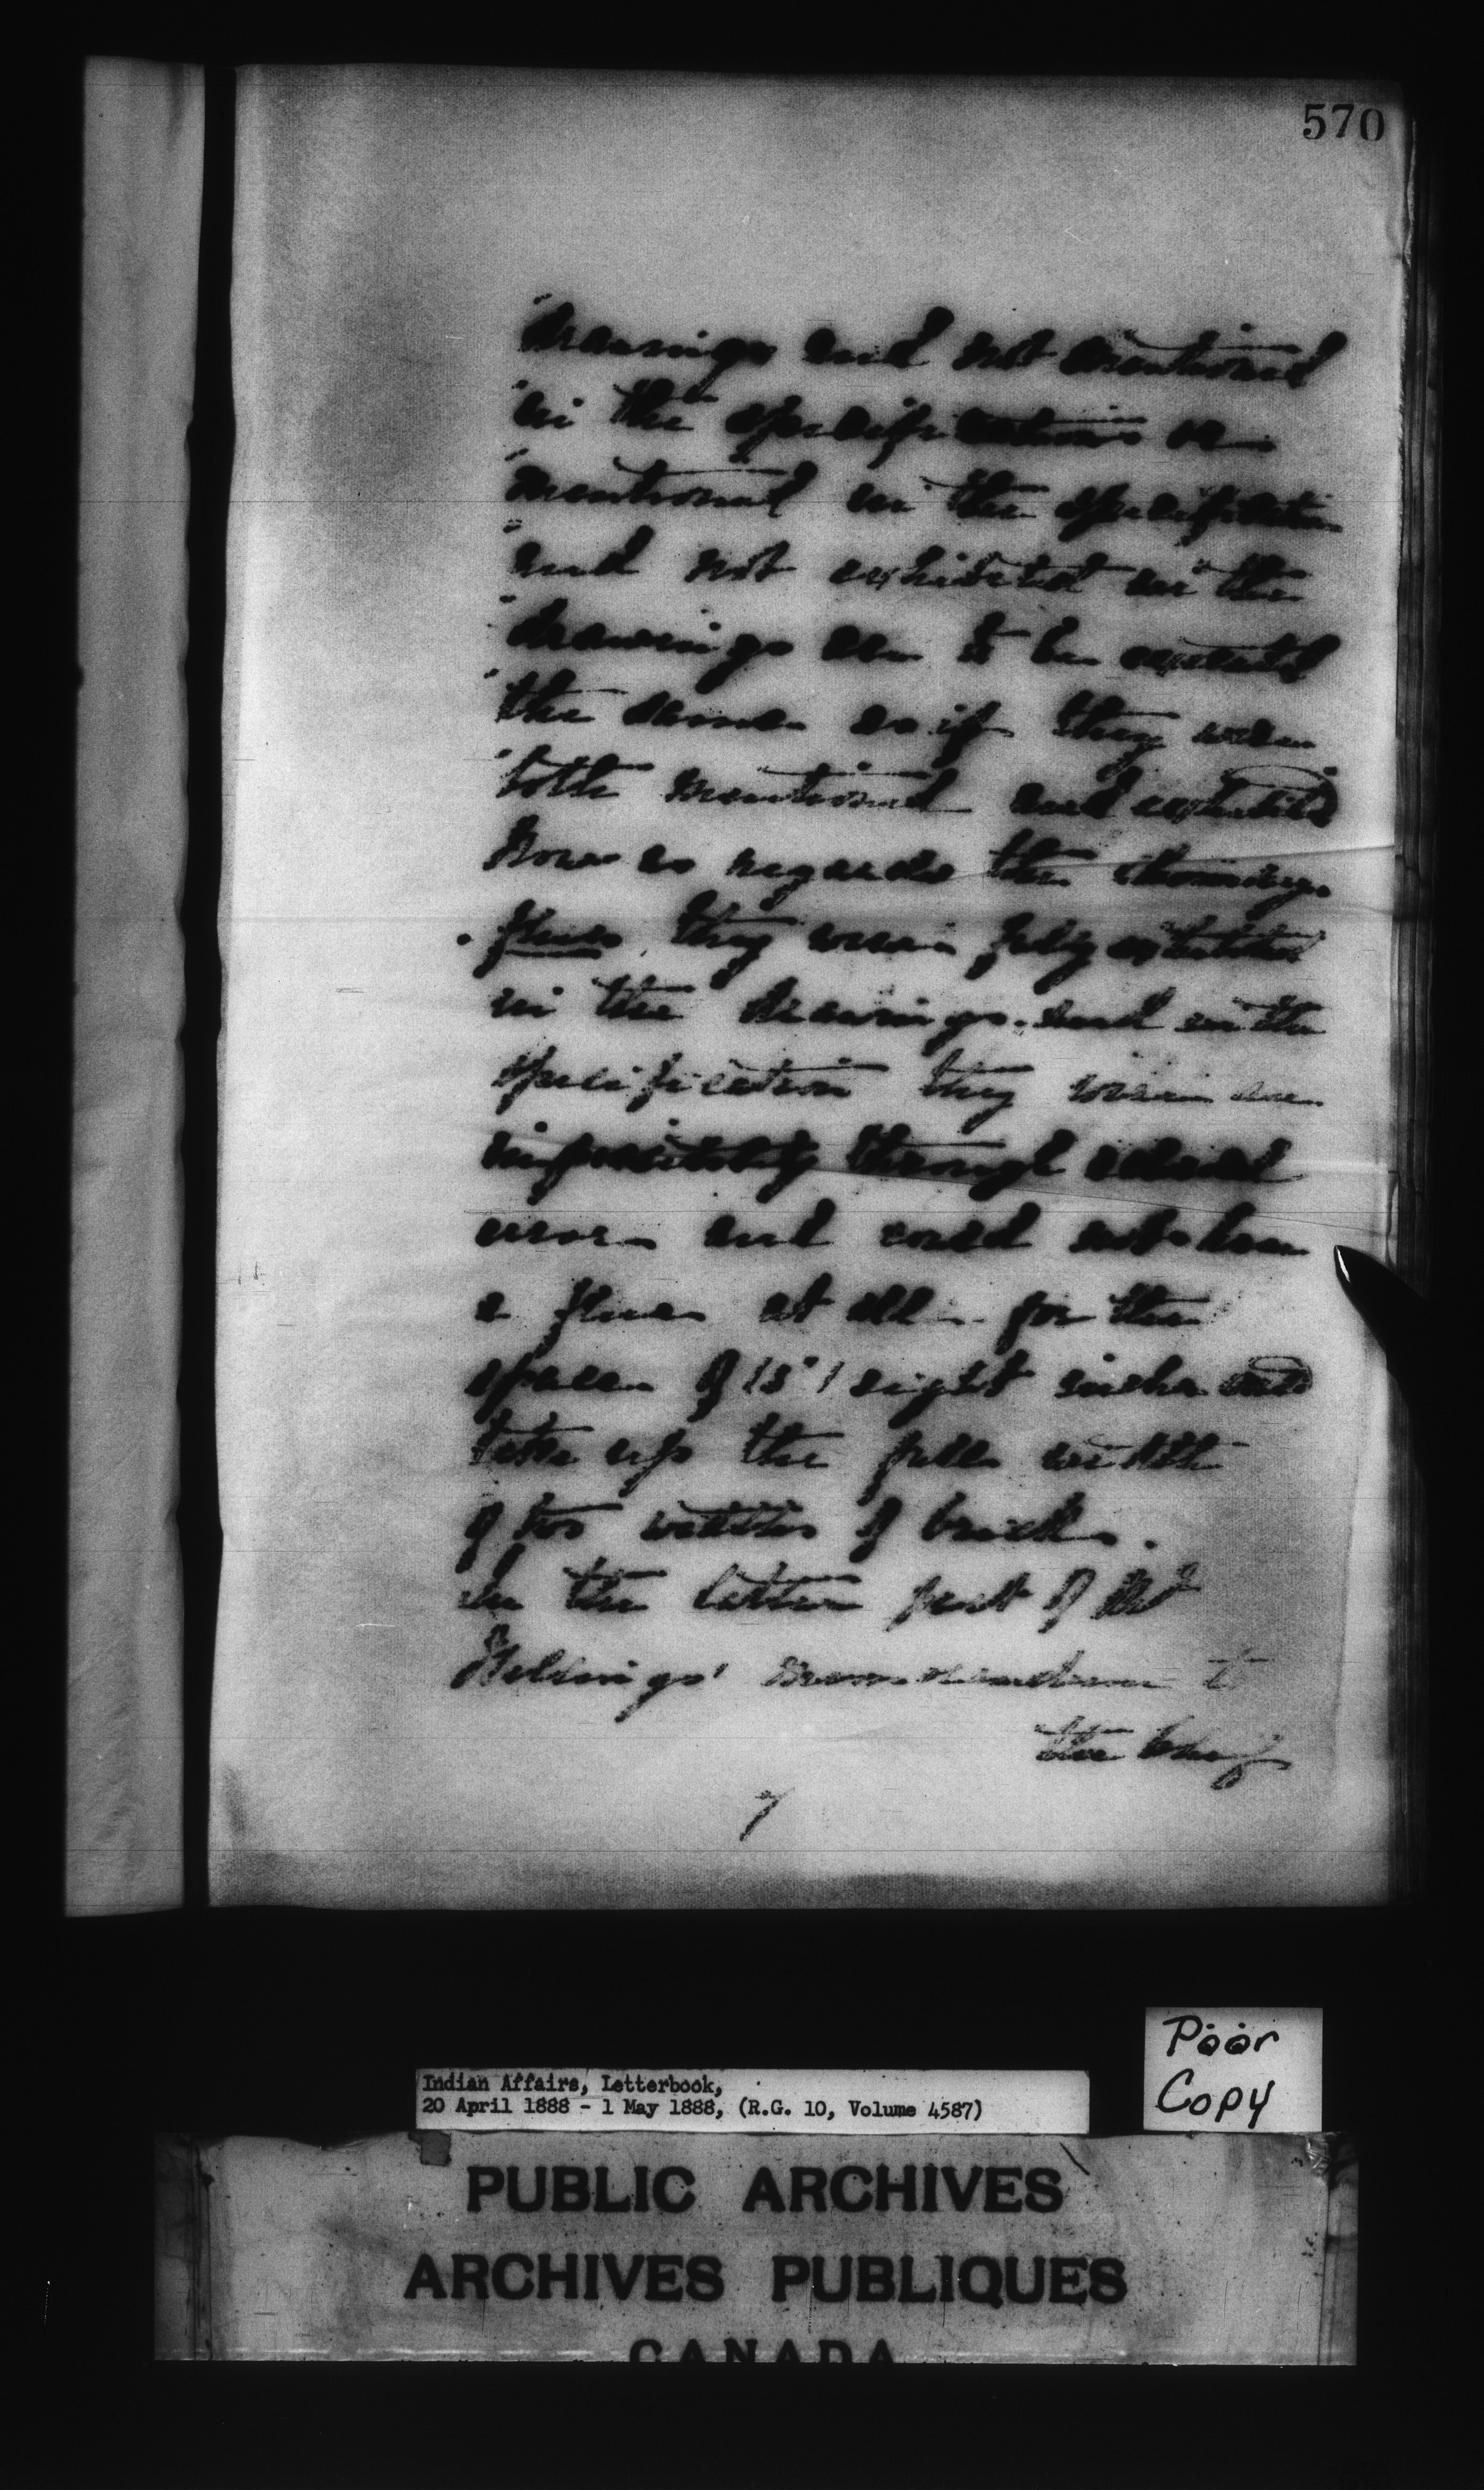 570
"drawings and not mentioned
"in the specifications or
"mentioned in the specification
"and not exhibited in the
"drawings are to be executed
"the same as if they were
"both mentioned and exhibited
Now as regards the chimney
flues, they were fully exhibited
in the drawings and in the
specification they were an
impossibility through clerical
error and could not be
a flue at all for the
space of 8" eight inches
take up the full width
of two widths of brick.
In the latter part of Mr
memorandum to
the Chief
7
Poor
Copy
Indian Affairs, Letterbook,
20 April 1888 - 1 May 1888, (R.G. 10, Volume 4587)
PUBLIC ARCHIVES
ARCHIVES PUBLIQUES
CANADA